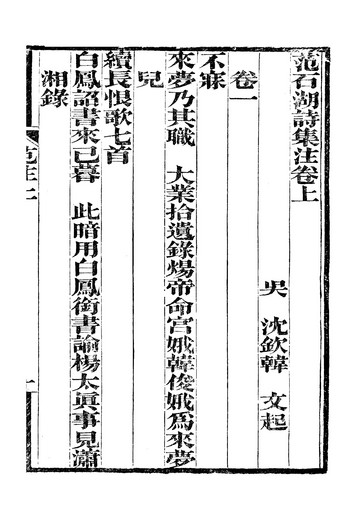 范石湖詩集注卷上
吳 沈欽韓 文起
卷一
不寐
來夢乃其職 大業拾遺錄煬帝命宮娥韓俊娥爲來夢
兒
續長恨歌七首
白鳳詔書來已暮 此暗用白鳳銜書諭楊太眞事見瀟
湘錄
范注上
一